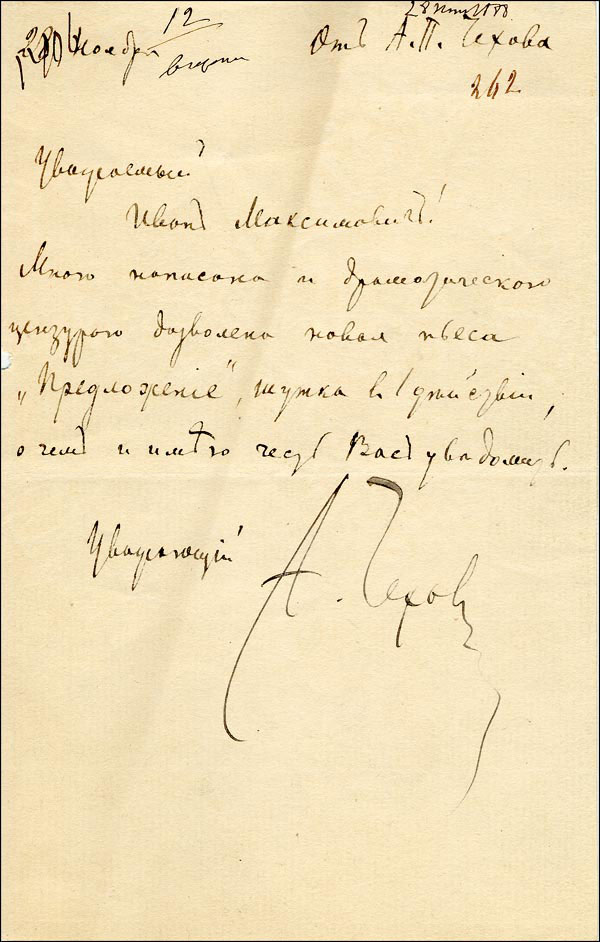 Ноября 12
Отъ А. П. Чехова
262
Уважаемый
Иванъ Максимовичъ!
Мною написана и драматическою
цензурою дозволена новая пьеса
„Предложеніе“, шутка въ 1 дѣйствіи,
о чемъ и имѣю честь Васъ увѣдомить.
Уважающій
А. Чеховъ